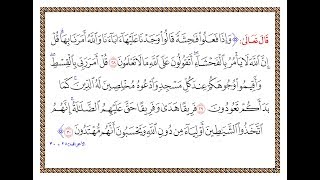 قَالَ تَعَالَىٰ: ﴿وَإِذَا فَعَلُوا۟ فَٰحِشَةً قَالُوا۟ وَجَدْنَا عَلَيْهَآ ءَابَآءَنَا وَٱللَّهُ أَمَرَنَا بِهَا ۗ قُلْ
إِنَّ ٱللَّهَ لَا يَأْمُرُ بِٱلْفَحْشَآءِ ۖ أَتَقُولُونَ عَلَى ٱللَّهِ مَا لَا تَعْلَمُونَ ۝٢٨ قُلْ أَمَرَ رَبِّى بِٱلْقِسْطِ ۖ
وَأَقِيمُوا۟ وُجُوهَكُمْ عِندَ كُلِّ مَسْجِدٍ وَٱدْعُوهُ مُخْلِصِينَ لَهُ ٱلدِّينَ ۚ كَمَا
بَدَأَكُمْ تَعُودُونَ ۝٢٩ فَرِيقًا هَدَىٰ وَفَرِيقًا حَقَّ عَلَيْهِمُ ٱلضَّلَٰلَةُ ۗ إِنَّهُمُ
ٱتَّخَذُوا۟ ٱلشَّيَٰطِينَ أَوْلِيَآءَ مِن دُونِ ٱللَّهِ وَيَحْسَبُونَ أَنَّهُم مُّهْتَدُونَ ۝٣٠﴾
الأعراف: ٢٨ - ٣٠